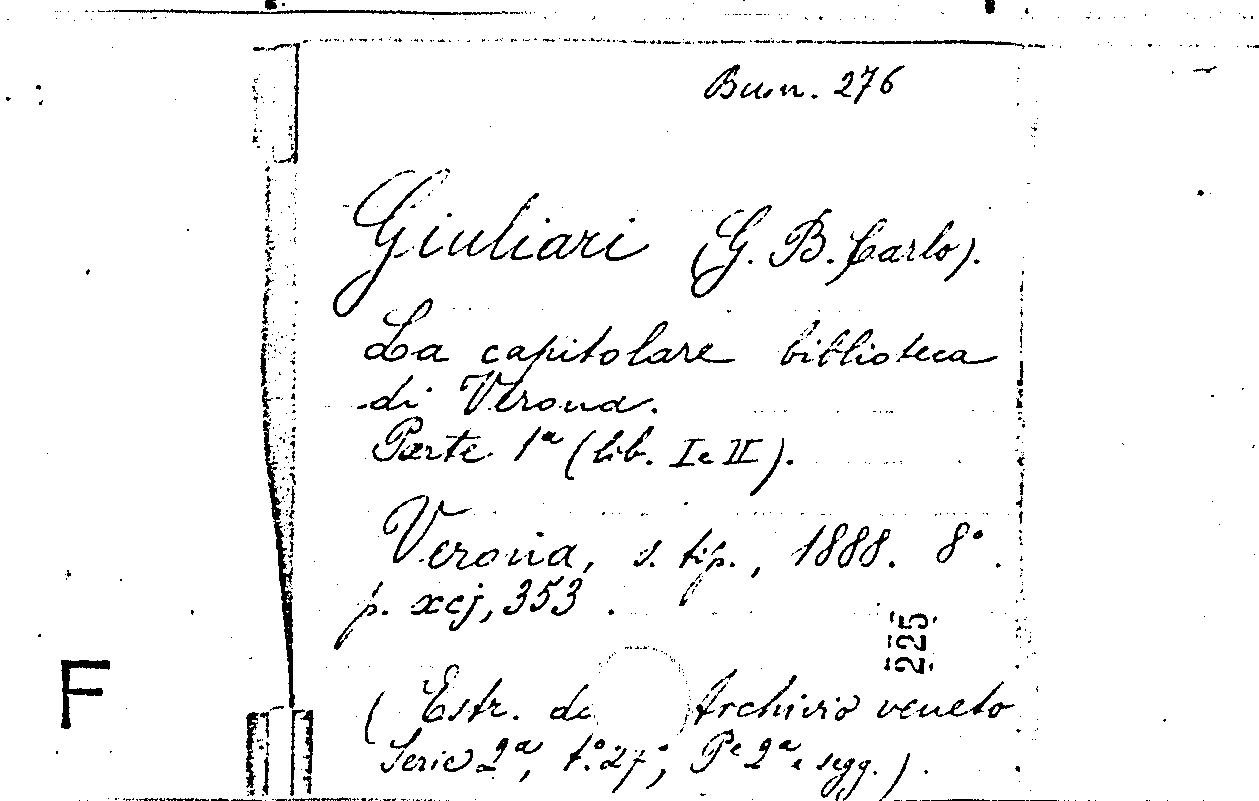 Buon. 276
Giuliari (G. B. Carlo).
La capitolare biblioteca
di Verona.
Parte 1ª (lib. I e II).
Verona, s. tip., 1888. 8°.
p. xcj, 353.
225
(Estr. da Archivio veneto
Serie 2ª, t.° 27°, Pe 2ª e segg.).
F